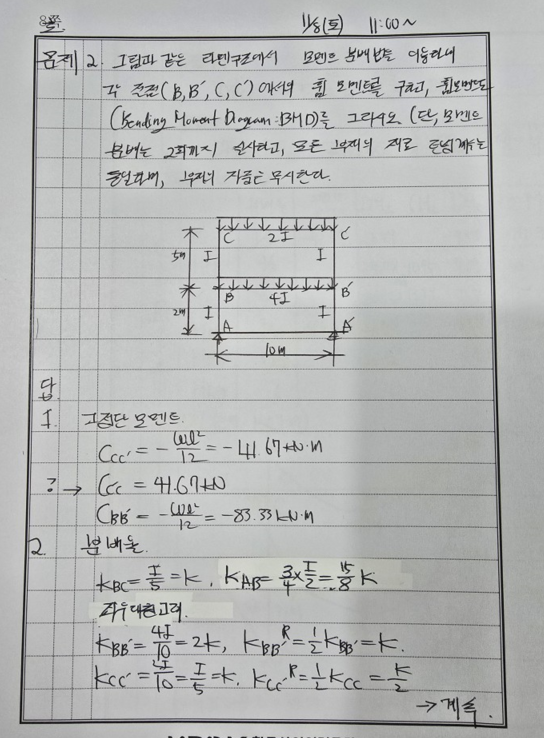 11/8(토) 11:00~
문제 2. 그림과 같은 라멘구조에서 모멘트 분배법을 이용하여
각 절점(B, B´, C, C´)에서의 휨모멘트를 구하고, 휨모멘트도
(Bending Moment Diagram : BMD)를 그리시오. (단, 모멘트
분배는 2회까지 실시하고, 모든 부재의 재료 탄성계수는
동일하며, 부재의 자중은 무시한다.
C 2I C´
5m I I
B 4I B´
2m I I
A A´
10m
답
1. 고정단 모멘트.
C_CC´ = -wl²/12 = -41.67kN·m
? → C_CC = 41.67kN
C_BB´ = -wl²/12 = -83.33kN·m
2. 분배율.
K_BC = I/5 = K, K_AB = 3/4 × I/2 = 15/8 K
좌우대칭고려.
K_BB´ = 4I/10 = 2K, K_BB´^R = 1/2 K_BB´ = K.
K_CC´ = 2I/10 = I/5 = K. K_CC´^R = 1/2 K_CC = K/2
→ 계속.